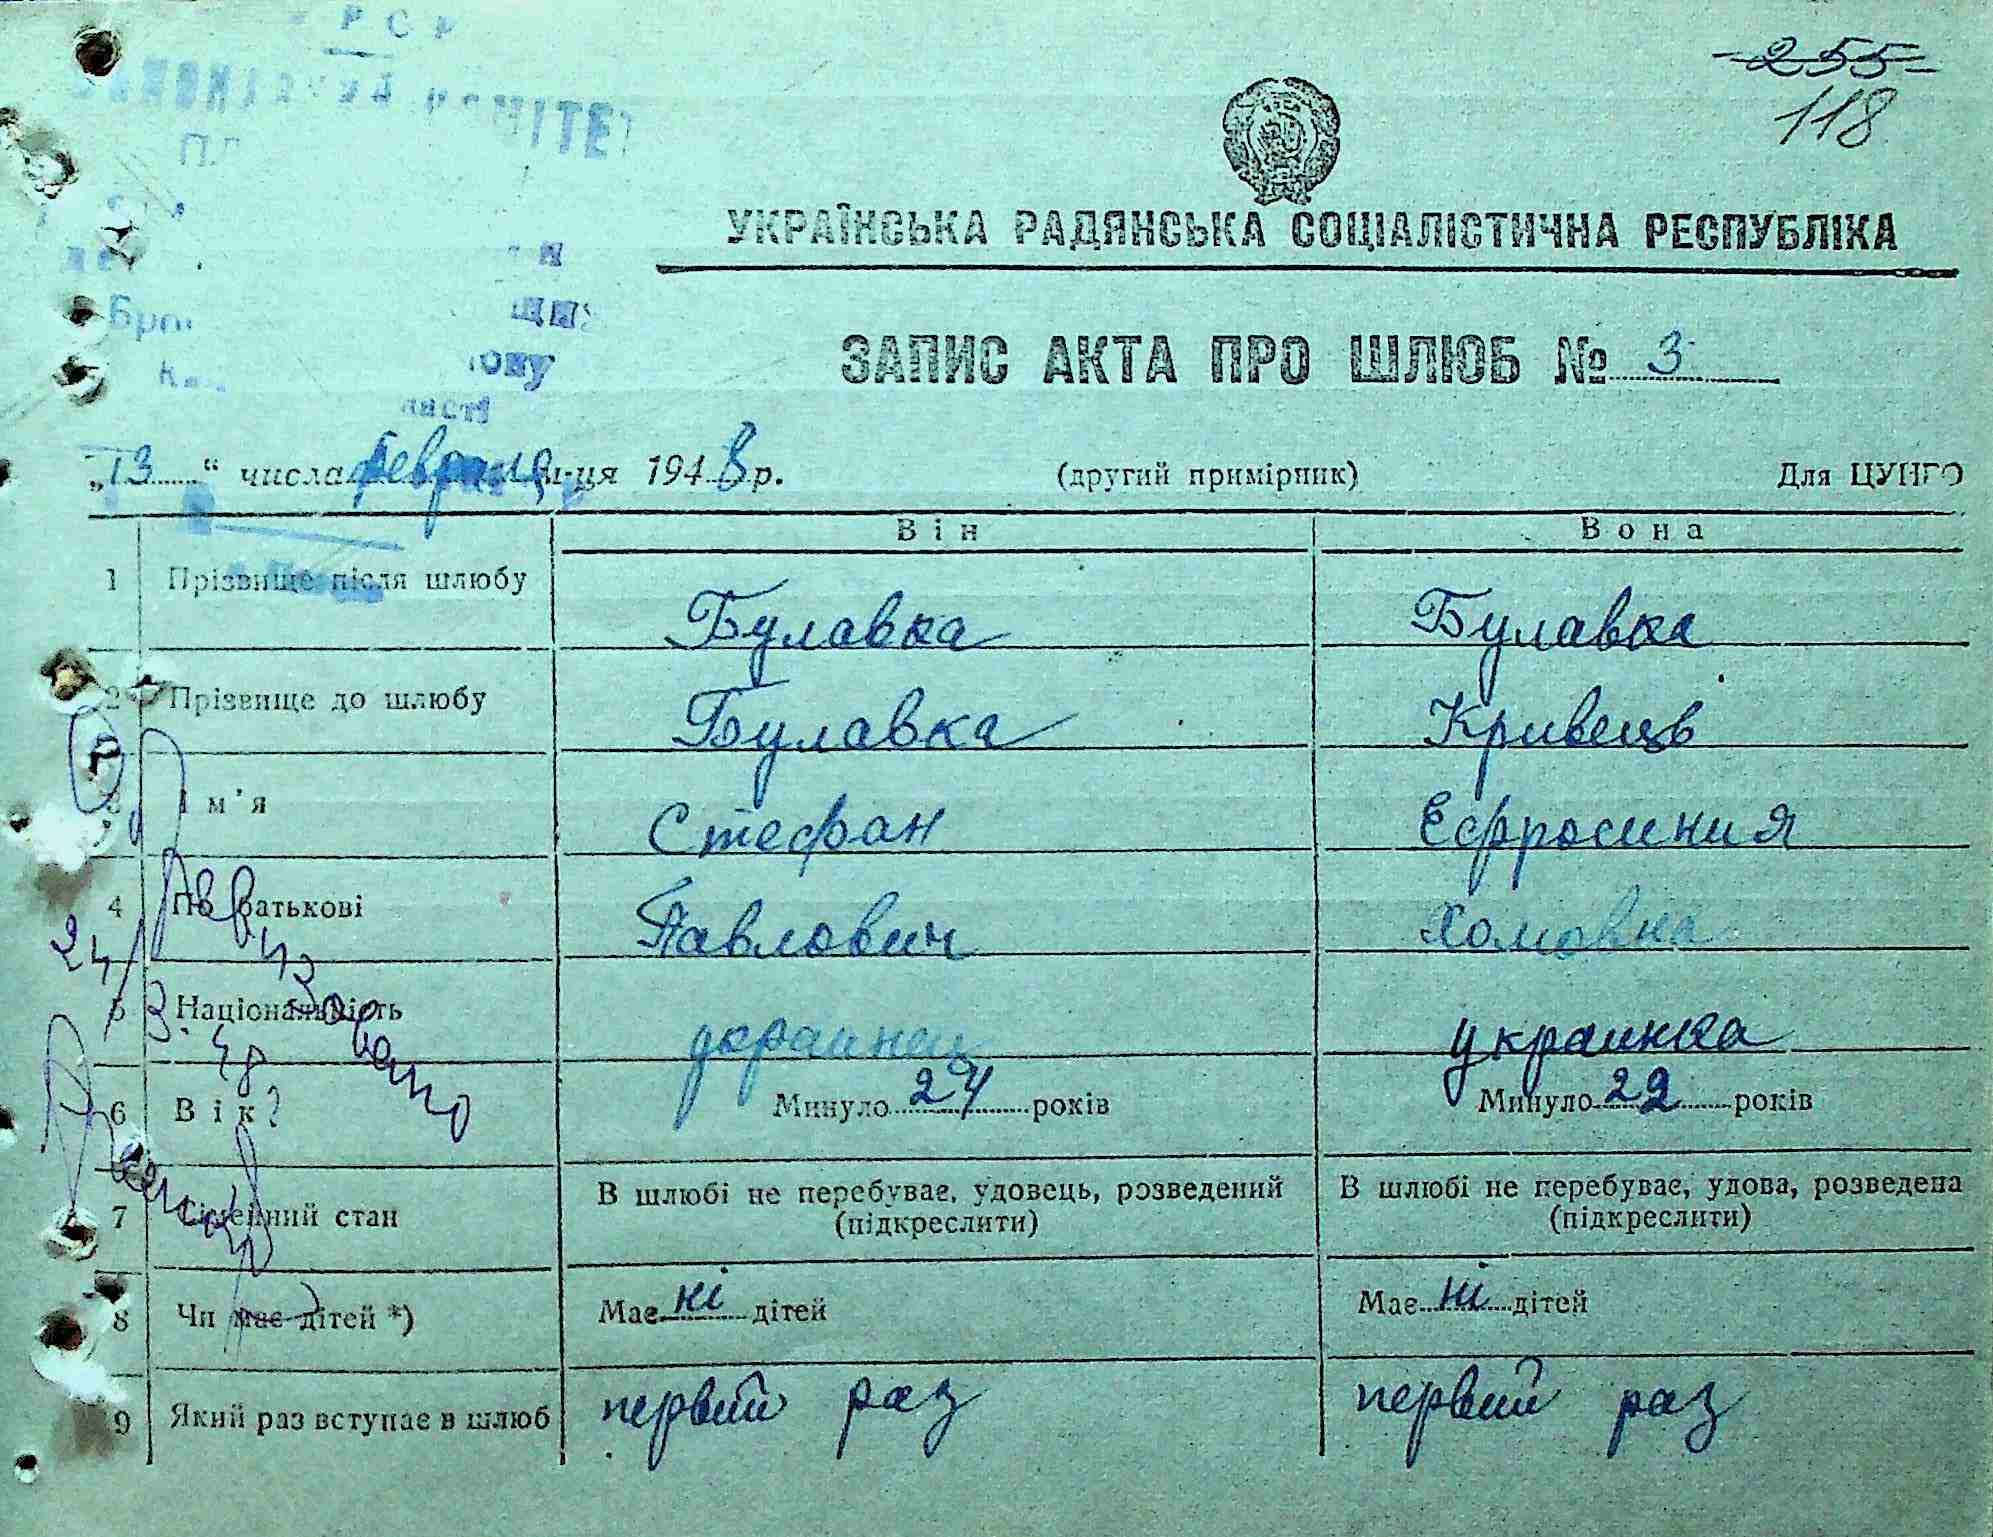 РСР
255
118
УКРАЇНСЬКА РАДЯНСЬКА СОЦІАЛІСТИЧНА РЕСПУБЛІКА
ЗАПИС АКТА ПРО ШЛЮБ № 3
„13“ числа февраля м-ця 1948 р. (другий примірник) Для ЦУНГО
Він Вона
1 Прізвище після шлюбу Булавка Булавка
2 Прізвище до шлюбу Булавка Кривець
3 Ім'я Стефан Ефросиния
4 По батькові Павлович Хомовна
5 Національність украинец украинка
6 Вік? Минуло 24 років Минуло 22 років
7 Сімейний стан В шлюбі не перебуває, удовець, розведений (підкреслити) В шлюбі не перебуває, удова, розведена (підкреслити)
8 Чи має дітей *) Має ні дітей Має ні дітей
9 Який раз вступає в шлюб первий раз первий раз
24/3.48